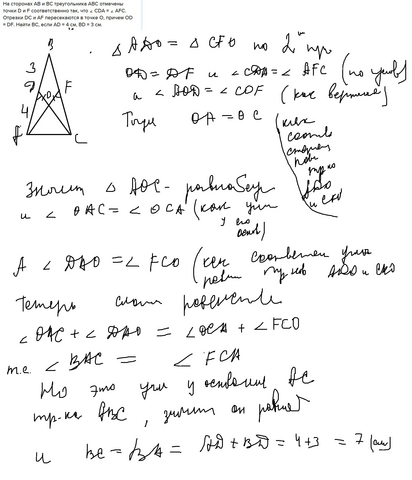 На сторонах АВ и ВС треугольника АВС отмечены
точки D и F соответственно так, что ∠ CDA = ∠ AFC.
Отрезки DC и AF пересекаются в точке O, причем OD
= DF. Найти ВС, если AD = 4 см, BD = 3 см.
B
3
F
O
4
C
△ ADO = △ CFO по 2 пр
OD = DF и ∠ CDA = ∠ AFC (по усл)
и ∠ AOD = ∠ COF (как вертик)
Тогда OA = OC (как
соотв
сторон
равн
тр-ков
ADO
и CFO
Значит △ AOC - равнобедр
и ∠ OAC = ∠ OCA (как углы
у его
основ)
А ∠ DAO = ∠ FCO (как соответств углы
равн тр-ков ADO и CFO
Теперь равенства
∠ OAC + ∠ DAO = ∠ OCA + ∠ FCO
т.е. ∠ BAC = ∠ FCA
Но это углы у основания AC
тр-ка ABC, значит он равноб
и BC = BA = AD + BD = 4+3 = 7 (см)